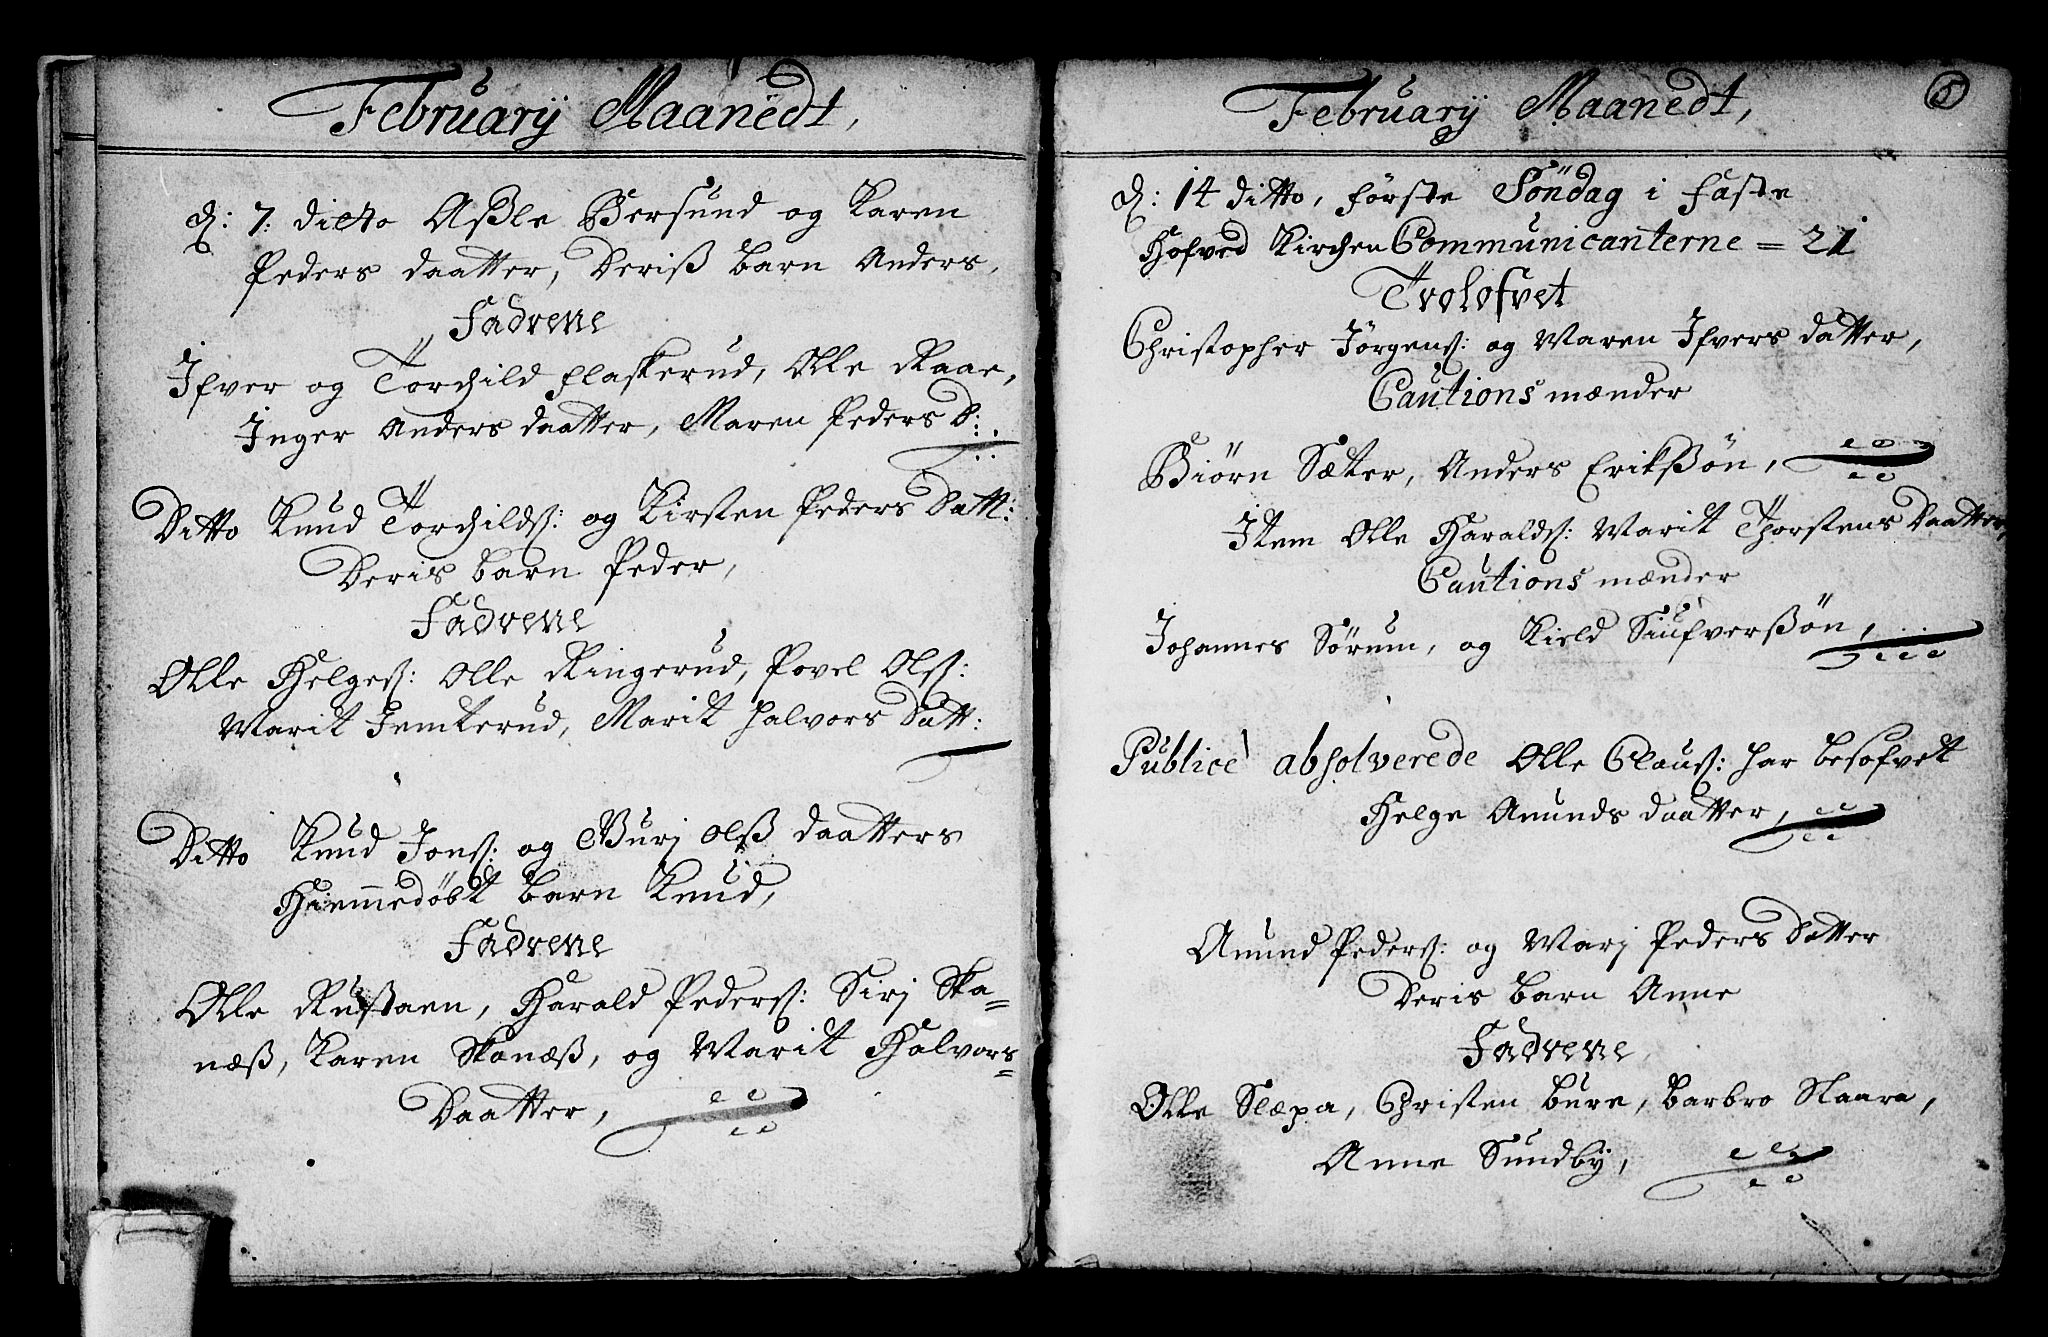 Februarij Maanedt,
d: 7: ditto Aßle Bersund og Karen
Peders daatter, Deriß barn Anders,
Fadrene
Ifver og Torchild Flaskerud, Olle Raae,
Inger Anders daatter, Maren Peders D:
Ditto Knud Torchilds: og Kirsten Peders Datt:
Deris barn Peder,
Fadrene
Olle Helges: Olle Ringerud, Povel Ols:
Marit Jemterud, Marit Halvors Datt:
Ditto Knud Jons: og Burj Olß daatters
Hiemmedøbt barn Knud,
Fadrene
Olle Rustaen, Harald Peders: Sirj Ska=
næß, Karen Skanæß, og Marit Halvors=
Daatter,
Februarij Maanedt,
5
d: 14 ditto, første Søndag i faste
Hofved Kirchen Communicanterne = 21
Trolofvet
Christopher Jørgens: og Maren Ifvers datter,
Cautions mænder
Biørn Sæter, Anders Erikßøn,
Item Olle Haralds: Marit Thorstens Daatter,
Cautions mænder
Johannes Sørum, og Kield Siufverßøn,
Publicè absolverede Olle Claus: har besofvet
Helge Amunds daatter,
Amund Peders: og Marj Peders Datter
Deris barn Anne
Fadrene
Olle Slæpa, Christen Bure, Barbro Slaara,
Anne Sundbÿ,